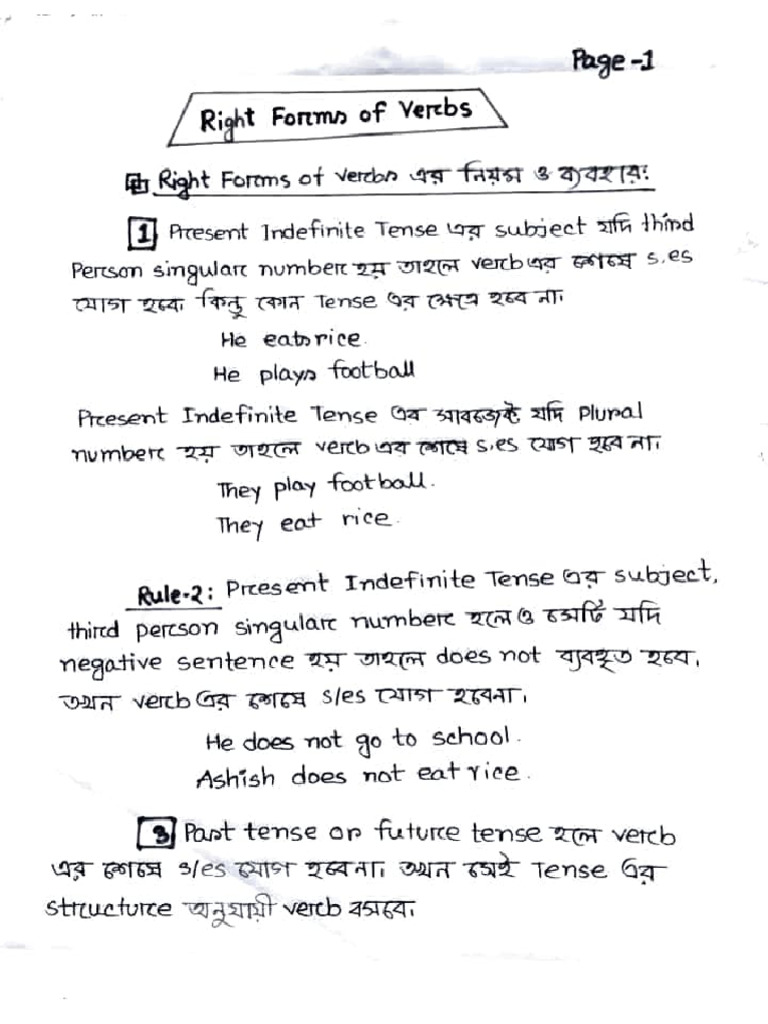 Page-1
Right Forms of Verbs
Right Forms of verbs এর নিয়ম ও ব্যবহার:
1 Present Indefinite Tense এর subject যদি third
Person singular number হয় তাহলে verb এর শেষে s,es
যোগ হবে। কিন্তু কোন Tense এর ক্ষেত্রে হবে না।
He eats rice.
He plays football
Present Indefinite Tense এর সাবজেক্ট যদি Plural
number হয় তাহলে verb এর শেষে s,es যোগ হবে না।
They play football.
They eat rice.
Rule-2: Present Indefinite Tense এর subject,
third person singular number হলে ও সেটি যদি
negative sentence হয় তাহলে does not ব্যবহৃত হবে,
তখন verb এর শেষে s/es যোগ হবেনা।
He does not go to school.
Ashish does not eat rice.
3 Past tense or future tense হলে verb
এর শেষে s/es যোগ হবেনা। তখন সেই Tense এর
structure অনুযায়ী verb বসবে।